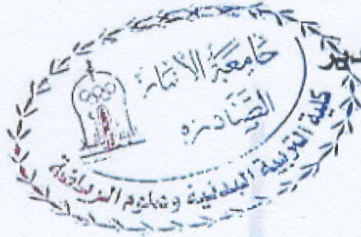 جامعة الأنبار
الصادرة
كلية التربية البدنية وعلوم الرياضة